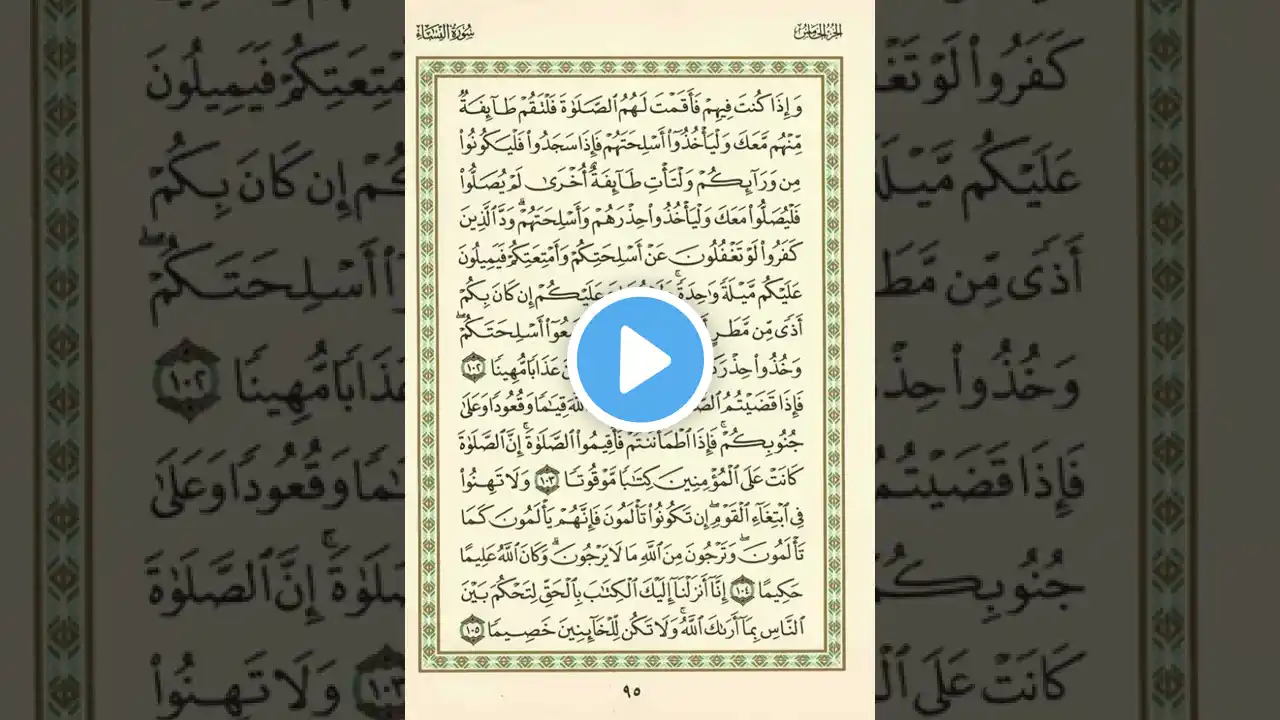 سُورَةُ النِّسَاءِ
الجزء الخامس
وَإِذَا كُنتَ فِيهِمْ فَأَقَمْتَ لَهُمُ ٱلصَّلَوٰةَ فَلْتَقُمْ طَآئِفَةٌ
مِّنْهُم مَّعَكَ وَلْيَأْخُذُوٓا۟ أَسْلِحَتَهُمْ فَإِذَا سَجَدُوا۟ فَلْيَكُونُوا۟
مِن وَرَآئِكُمْ وَلْتَأْتِ طَآئِفَةٌ أُخْرَىٰ لَمْ يُصَلُّوا۟
فَلْيُصَلُّوا۟ مَعَكَ وَلْيَأْخُذُوا۟ حِذْرَهُمْ وَأَسْلِحَتَهُمْ ۗ وَدَّ ٱلَّذِينَ
كَفَرُوا۟ لَوْ تَغْفُلُونَ عَنْ أَسْلِحَتِكُمْ وَأَمْتِعَتِكُمْ فَيَمِيلُونَ
عَلَيْكُم مَّيْلَةً وَٰحِدَةً ۚ عَلَيْكُمْ إِن كَانَ بِكُمْ
أَذًى مِّن مَّطَرٍ أَسْلِحَتَكُمْ ۖ
وَخُذُوا۟ عَذَابًا مُّهِينًا ١٠٢
فَإِذَا قَضَيْتُمُ ٱللَّهَ قِيَٰمًا وَقُعُودًا وَعَلَىٰ
جُنُوبِكُمْ ۚ فَإِذَا ٱطْمَأْنَنتُمْ فَأَقِيمُوا۟ ٱلصَّلَوٰةَ ۚ إِنَّ ٱلصَّلَوٰةَ
كَانَتْ عَلَى ٱلْمُؤْمِنِينَ كِتَٰبًا مَّوْقُوتًا ١٠٣ وَلَا تَهِنُوا۟
فِى ٱبْتِغَآءِ ٱلْقَوْمِ ۖ إِن تَكُونُوا۟ تَأْلَمُونَ فَإِنَّهُمْ يَأْلَمُونَ كَمَا
تَأْلَمُونَ ۖ وَتَرْجُونَ مِنَ ٱللَّهِ مَا لَا يَرْجُونَ ۗ وَكَانَ ٱللَّهُ عَلِيمًا
حَكِيمًا ١٠٤ إِنَّآ أَنزَلْنَآ إِلَيْكَ ٱلْكِتَٰبَ بِٱلْحَقِّ لِتَحْكُمَ بَيْنَ
ٱلنَّاسِ بِمَآ أَرَىٰكَ ٱللَّهُ ۚ وَلَا تَكُن لِّلْخَآئِنِينَ خَصِيمًا ١٠٥
٩٥